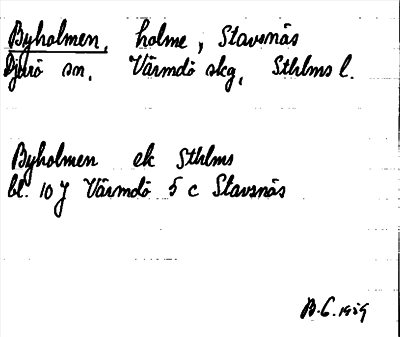 Byholmen, holme, Stavsnäs
Djurö sn, Värmdö skg, Sthlms l.
Byholmen ek Sthlms
bl. 10 J Värmdö 5 c Stavsnäs
B.G. 1959